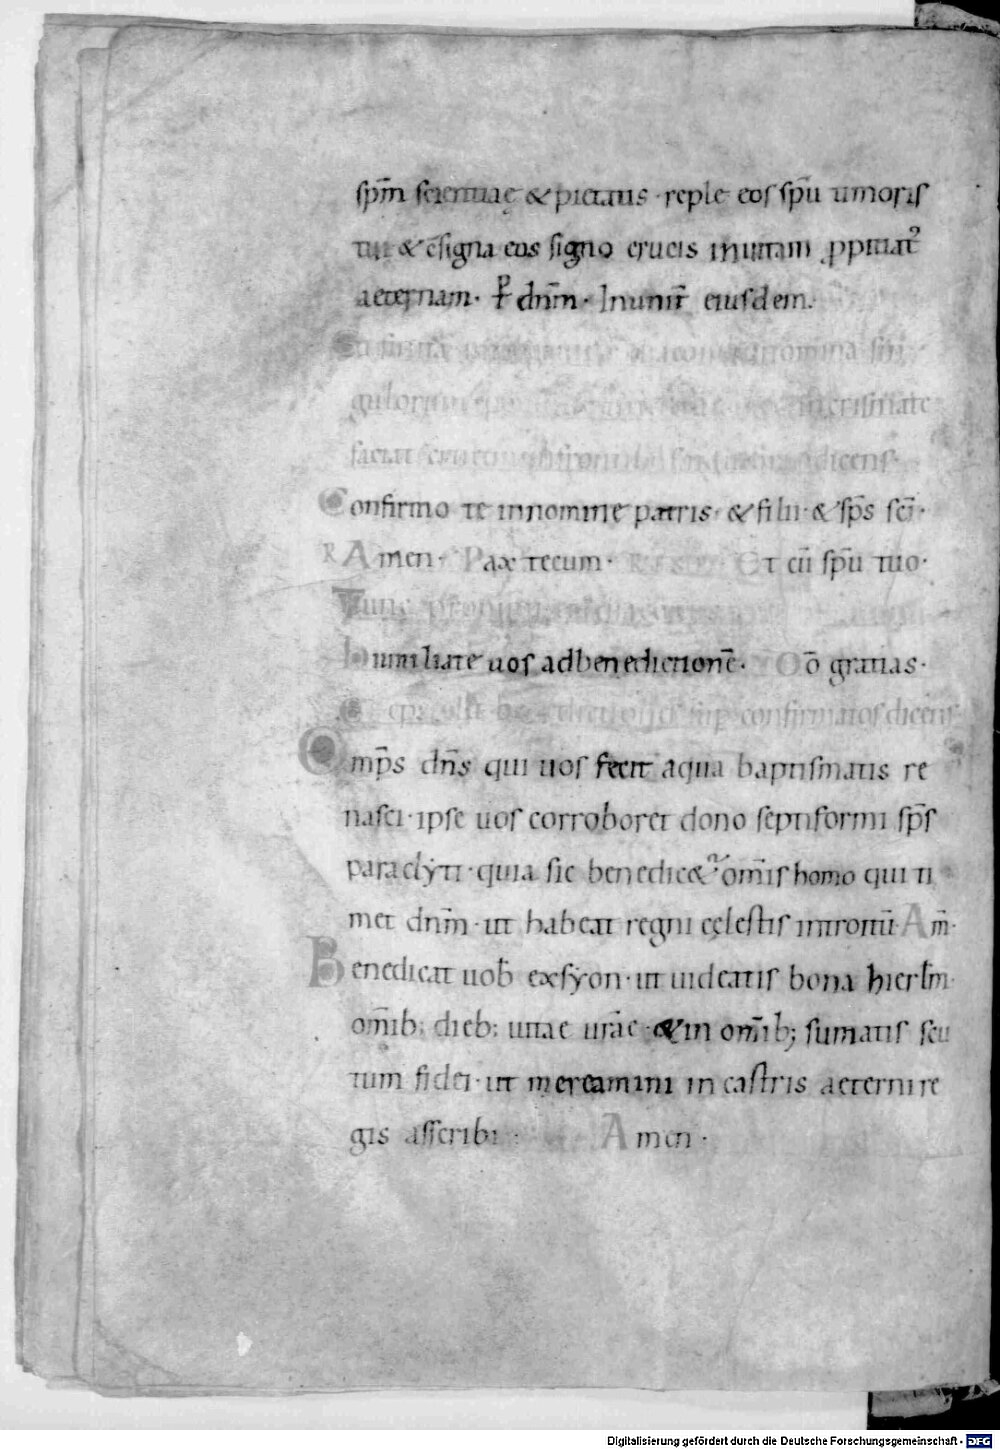 sp̄m scientiae & pietatis · reple eos sp̄u timoris
tui & c̄signa eos signo crucis in uitam ppitiat᷒
aeternam · P dn̄m · In unit̄ eiusdem ·
nomina sin
gulorum crismate
faciat dicens ·
Confirmo te in nomine patris · & filii · & sp̄s sc̄i ·
R Amen · Pax tecum · Et cū sp̄u tuo ·
Tunc
humiliate uos ad benedictionē · Dō gratias ·
sup confirmatos dicens
Omp̄s dn̄s qui uos fecit aqua baptismatis re
nasci · ipse uos corroboret dono septiformi sp̄s
paraclyti · quia sic benedic& om̄is homo qui ti
met dn̄m · ut habeat regni cęlestis introitū Am̄ ·
Benedicat uob̄ ex syon · ut uideatis bona hierl̄m
om̄ib; dieb; uitae ur̄ae · & in om̄ib; sumatis scu
tum fidei · ut mereamini in castris aeterni re
gis asscribi · Amen ·
Digitalisierung gefördert durch die Deutsche Forschungsgemeinschaft - DFG